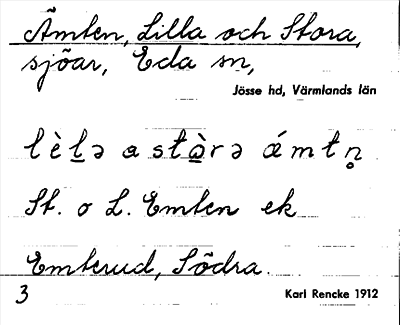 Ämten, Lilla och Stora,
sjöar, Eda sn,
Jösse hd, Värmlands län
lèḻə a stå̱̀rə ǽmtn̥
St. o L. Emten ek
Emterud, Södra.
3
Karl Rencke 1912